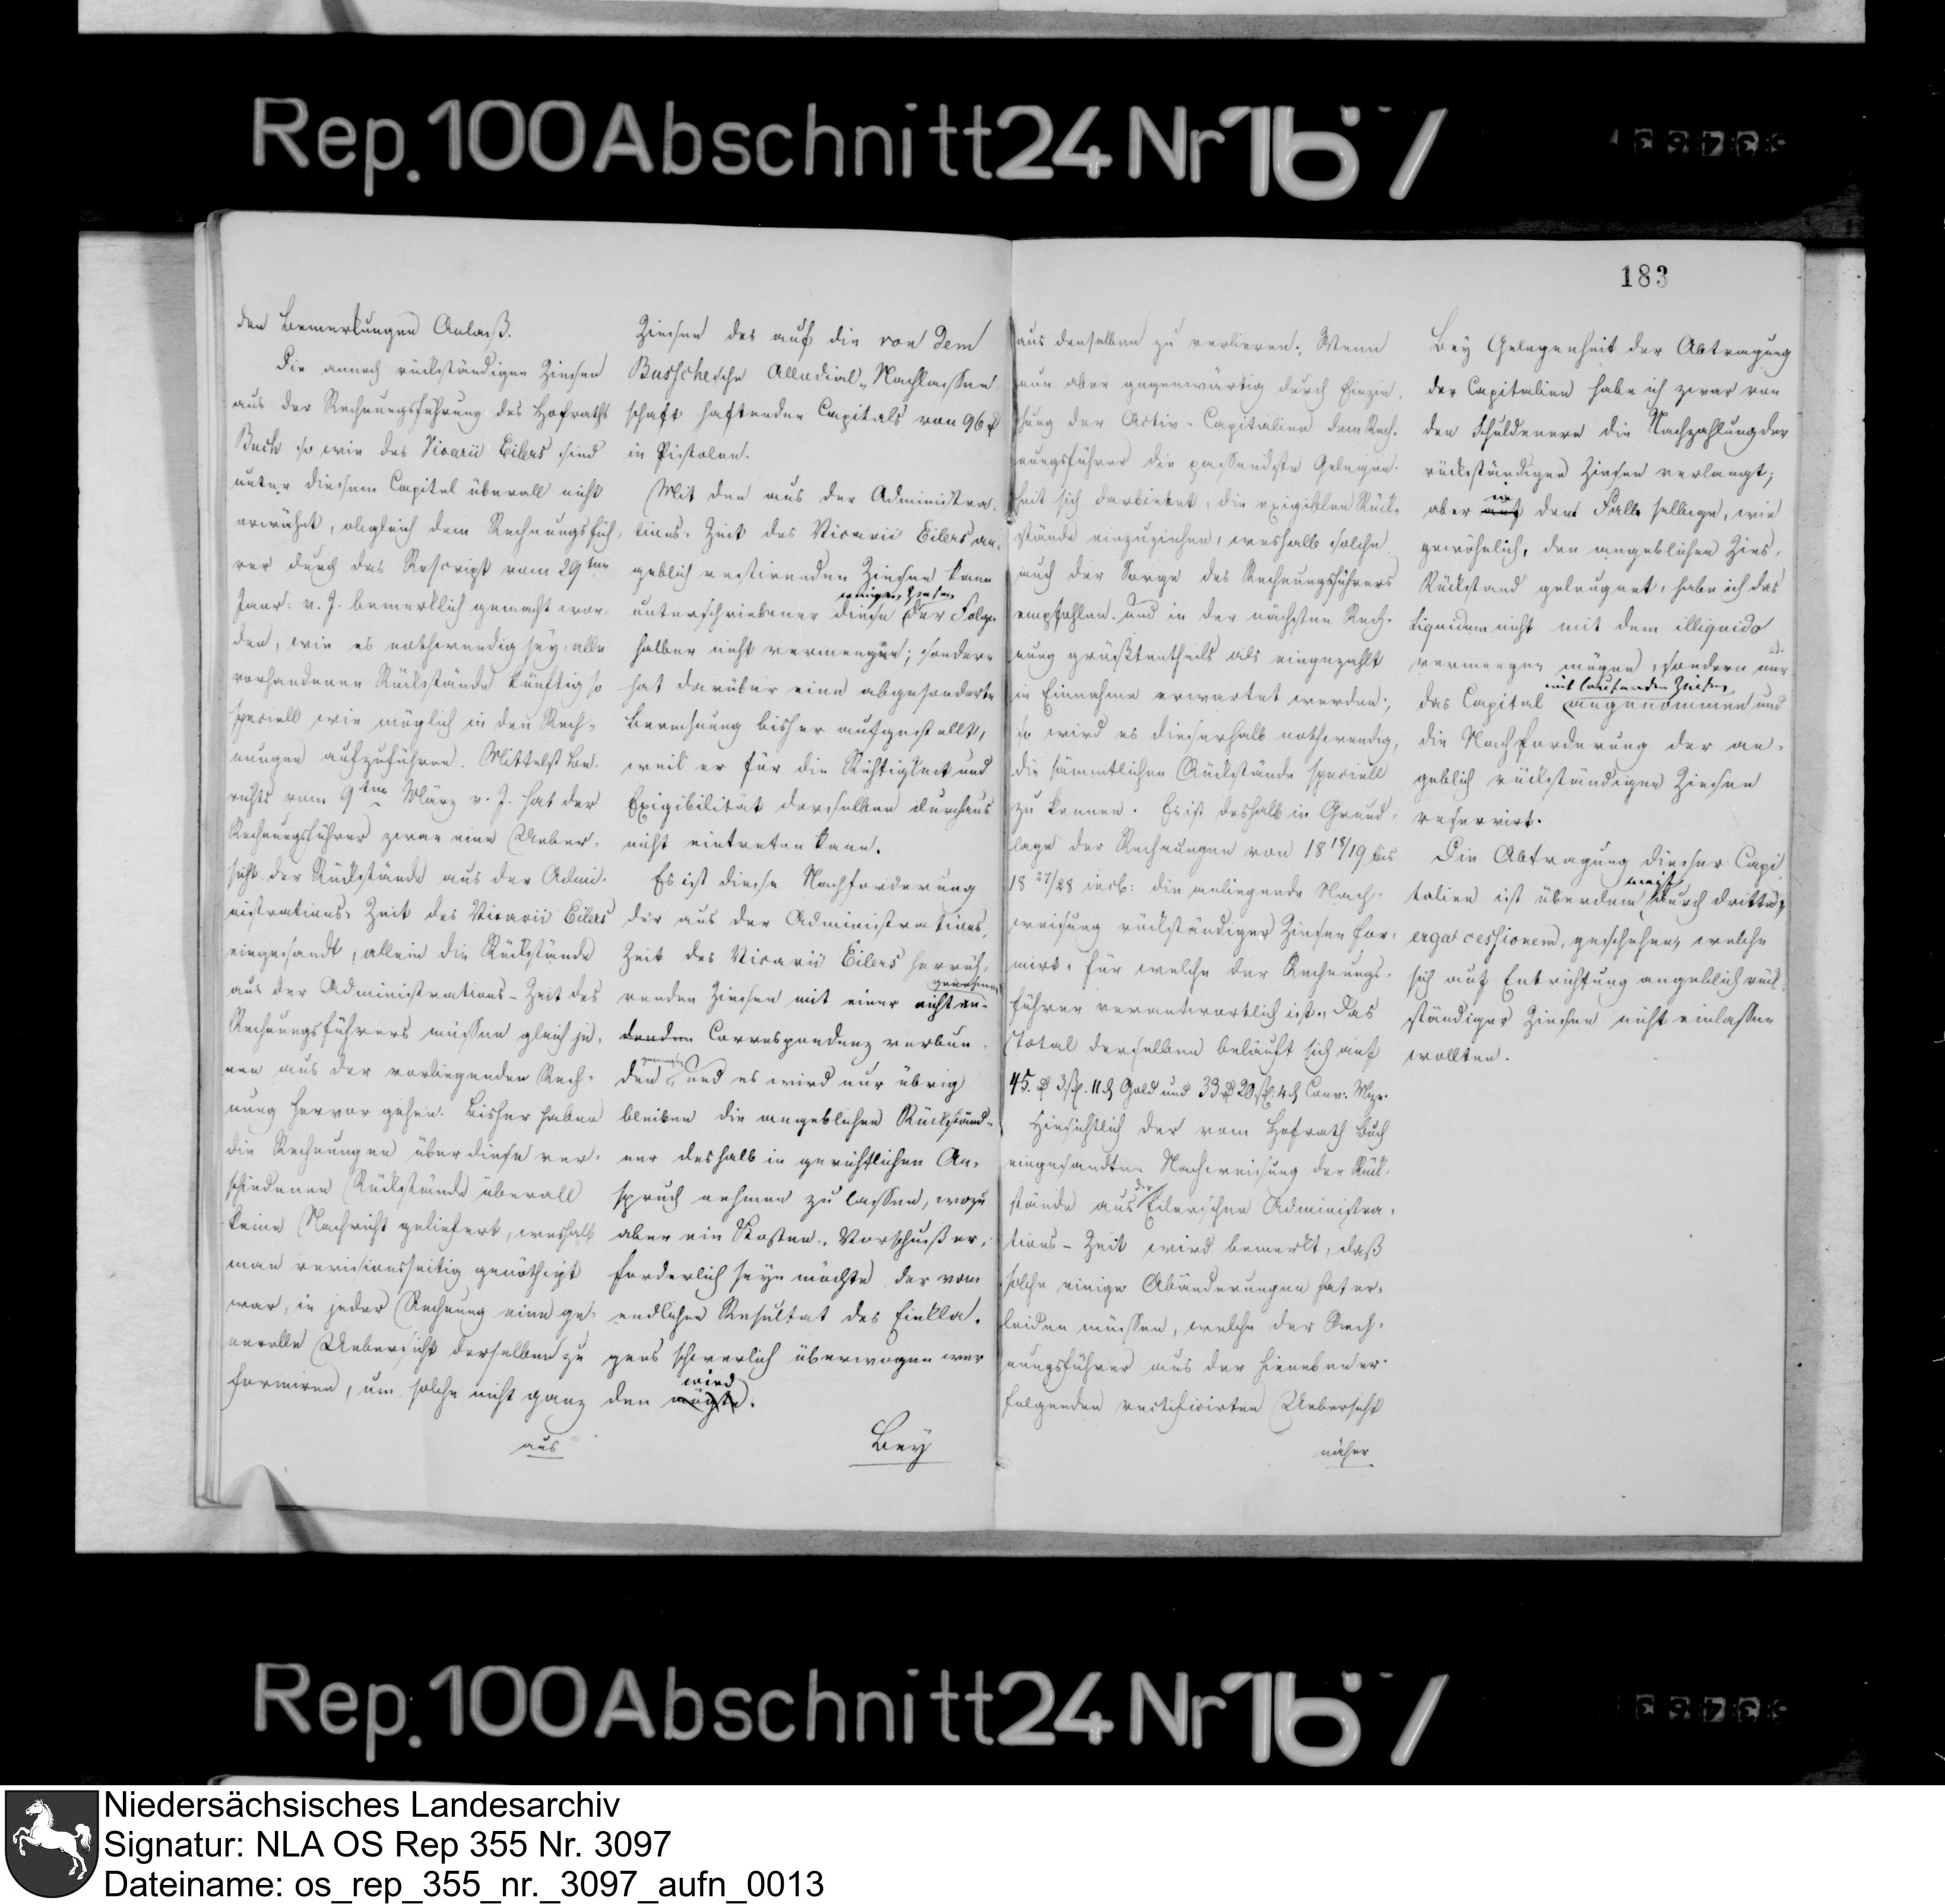 Rep. 100 Abschnitt 24 Nr 167
183
den Bemerkungen Anlaß.
Die annoch rückständigen Zinsen
aus der Rechnungsführung des Hofraths
Buch so wie des Vicarii Eilers sind
unter diesem Capitel überall nicht
erwähnt, obgleich dem Rechnungsfüh-
rer durch das Rescript vom 29ten
Janr: v. J. bemerklich gemacht wor-
den, wie es nothwendig sey, alle
vorhandenen Rückstände künftig so
speciell wie möglich in den Rech-
nungen aufzuführen. Mittelst Be-
richts vom 9ten März v. J. hat der
Rechnungsführer zwar eine Ueber-
sicht der Rückstände aus der Admi-
nistrations-Zeit des Vicarii Eilers
eingesandt, allein die Rückstände
aus der Administrations-Zeit des
Rechnungsführers müssen gleich je-
nen aus der vorliegenden Rech-
nung hervor gehen. Bisher haben
die Rechnungen über diese ver-
schiedenen Rückstände überall
keine Nachricht geliefert, weshalb
man revisionsseitig genöthigt
war, in jeder Rechnung eine ge-
nerelle Uebersicht derselben zu
formiren, um solche nicht ganz
aus
Zinsen des auf die von dem
Busschesche Allodial-Nachlassen-
schaft haftenden Capitals von 96 rt
in Pistolen.
Mit den aus der Administra-
tions-Zeit des Vicarii Eilers an-
geblich restirenden Zinsen kann
einigen Zinsen
unterschriebener diese der Folge
halber nicht vermengen; sondern
hat darüber eine abgesonderte
Berechnung bisher aufgestellt,
weil er für die Richtigkeit und
Exigibilität derselben durchaus
nicht eintreten kann.
Es ist diese Nachforderung
der aus der Administrations-
Zeit des Vicarii Eilers herrüh-
renden Zinsen mit einer nicht en-
denden Correspondenz verbun-
gewesen
den, und es wird nur übrig
bleiben die angeblichen Rückständ-
ner deshalb in gerichtlichen An-
spruch nehmen zu lassen, wozu
aber ein Kosten-Vorschuß er-
forderlich seyn möchte, der vom
endlichen Resultat des Einkla-
gens schwerlich überwogen wer
wird
den mögte.
Bey
aus denselben zu verlieren. Wenn
nun aber gegenwärtig durch Einzie-
hung der Activ-Capitalien dem Rech-
nungsführer die passendste Gelegen-
heit sich darbietet, die exigiblen Rück-
stände einzuziehen, weshalb solche
auch der Sorge des Rechnungsführers
empfohlen und in der nächsten Rech-
nung größtentheils als eingezahlt
in Einnahme erwartet werden;
so wird es dieserhalb nothwendig,
die sämmtlichen Rückstände speciell
zu kennen. Es ist deshalb in Grund-
lage der Rechnungen von 18 18/19 bis
18 27/28 incl: die anliegende Nach-
weisung rückständiger Zinsen for-
mirt, für welche der Rechnungs-
führer verantwortlich ist. Das
Total derselben beläuft sich auf
45 rt 3 ßl. 11 d Gold und 33 rt 20 ßl. 4 d Conv. Mze.
Hinsichtlich der vom Hofrath Buch
eingesandten Nachweisung der Rück-
der
stände aus Eilersschen Administra-
tions-Zeit wird bemerkt, daß
solche einige Abänderungen hat er-
leiden müssen, welche der Rech-
nungsführer aus der hieneben er-
folgenden rectificirten Uebersicht
näher
Bey Gelegenheit der Abtragung
der Capitalien habe ich zwar von
den Schuldenern die Nachzahlung der
rückständigen Zinsen verlangt;
in
aber auf dem Falle selbige, wie
gewöhnlich, den angeblichen Zins-
Rückstand geleugnet, habe ich das
Liquidum nicht mit dem illiquido
vermengen mögen, sondern nur
mit laufenden Zinsen
das Capital angenommen und
die Nachforderung der an-
geblich rückständigen Zinsen
reservirt.
Die Abtragung dieser Capi-
meist
talien ist überdem durch dritte,
erga cessionem, geschehen, welche
sich auf Entrichtung angeblich rück-
ständiger Zinsen nicht einlassen
wollten.
Rep. 100 Abschnitt 24 Nr 167
Niedersächsisches Landesarchiv
Signatur: NLA OS Rep 355 Nr. 3097
Dateiname: os_rep_355_nr._3097_aufn_0013